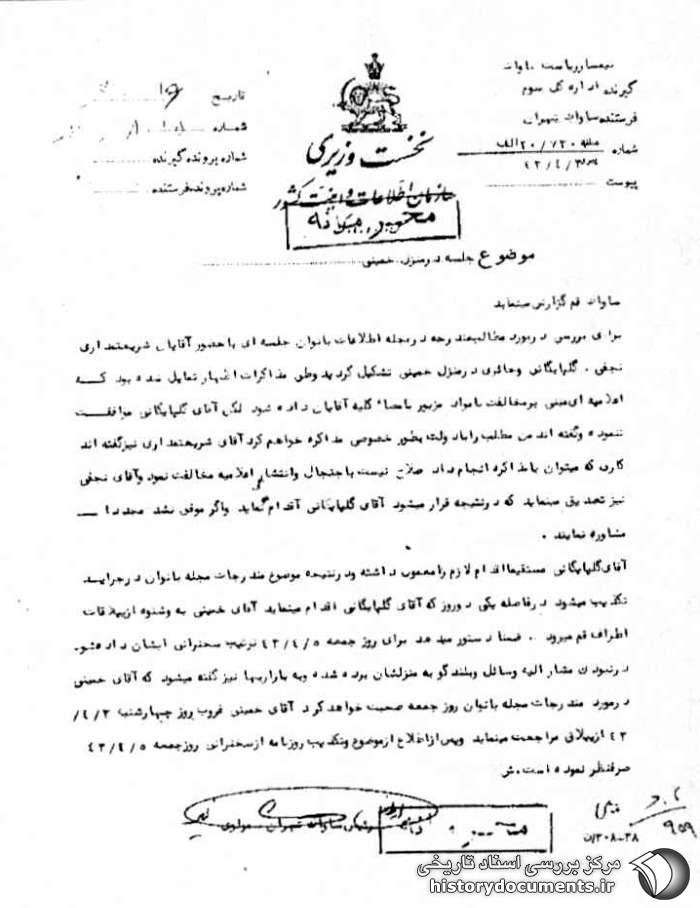 تیمسار ریاست ساواک
گیرنده اداره کل سوم
فرستنده ساواک تهران
شماره ۲۰/۷۳۰ الف
۴۳/۴/
پیوست
تاریخ
شماره
شماره پرونده گیرنده
شماره پرونده فرستنده
نخست وزیری
سازمان اطلاعات و امنیت کشور
محرمانه
موضوع جلسه در منزل خمینی
ساواک قم گزارش مینماید
برای بررسی در مورد مطالب مندرجه در مجله اطلاعات بانوان جلسه ای با حضور آقایان شریعتمداری
نجفی . گلپایگانی و حائری در منزل خمینی تشکیل گردید وطی مذاکرات اظهار تمایل شده بود کــه
اعلامیه ای مبنی بر مخالفت با مواد مزبور بامضاء کلیه آقایان داده شود لکن آقای گلپایگانی موافقــت
ننموده وگفته اند من مطلب را با دولت بطور خصوصی مذاکره خواهم کرد آقای شریعتمداری نیز گفته اند
کاری که میتوان با مذاکره انجام داد صلاح نیست با جنجال وانتشار اعلامیه مخالفت نمود وآقای نجفی
نیز تصدیق مینماید که در نتیجه قرار میشود آقای گلپایگانی اقدام نماید واگر موفق نشد مجددا ــ
مشاوره نمایند .
آقای گلپایگانی مستقیما اقدام لازم را معمول داشته ودر نتیجه موضوع مندرجات مجله بانوان در جرایــد
تکذیب میشود در فاصله یکی دو روز که آقای گلپایگانی اقدام مینماید آقای خمینی به وشنوه از ییلاقات
اطراف قم میرود . ضمنا دستور میدهد برای روز جمعه ۴۳/۴/۵ ترتیب سخنرانی ایشان داده شود
در نبودن مشار الیه وسائل وبلندگو به منزلشان برده شده وبه بازاریها نیز گفته میشود که آقای خمینی
در مورد مندرجات مجله بانوان روز جمعه صحبت خواهد کرد آقای خمینی غروب روز چهارشنبه ۳/۴/
۴۳ از ییلاق مراجعت مینماید وپس از اطلاع از موضوع وتکذیب روزنامه از سخنرانی روز جمعه ۴۳/۴/۵
صرفنظر نموده است.ش
رئیس ساواک تهران مولوی
۳۰۸-۳۸/ن
۹۵۹
مرکز بررسی اسناد تاریخی
historydocuments.ir